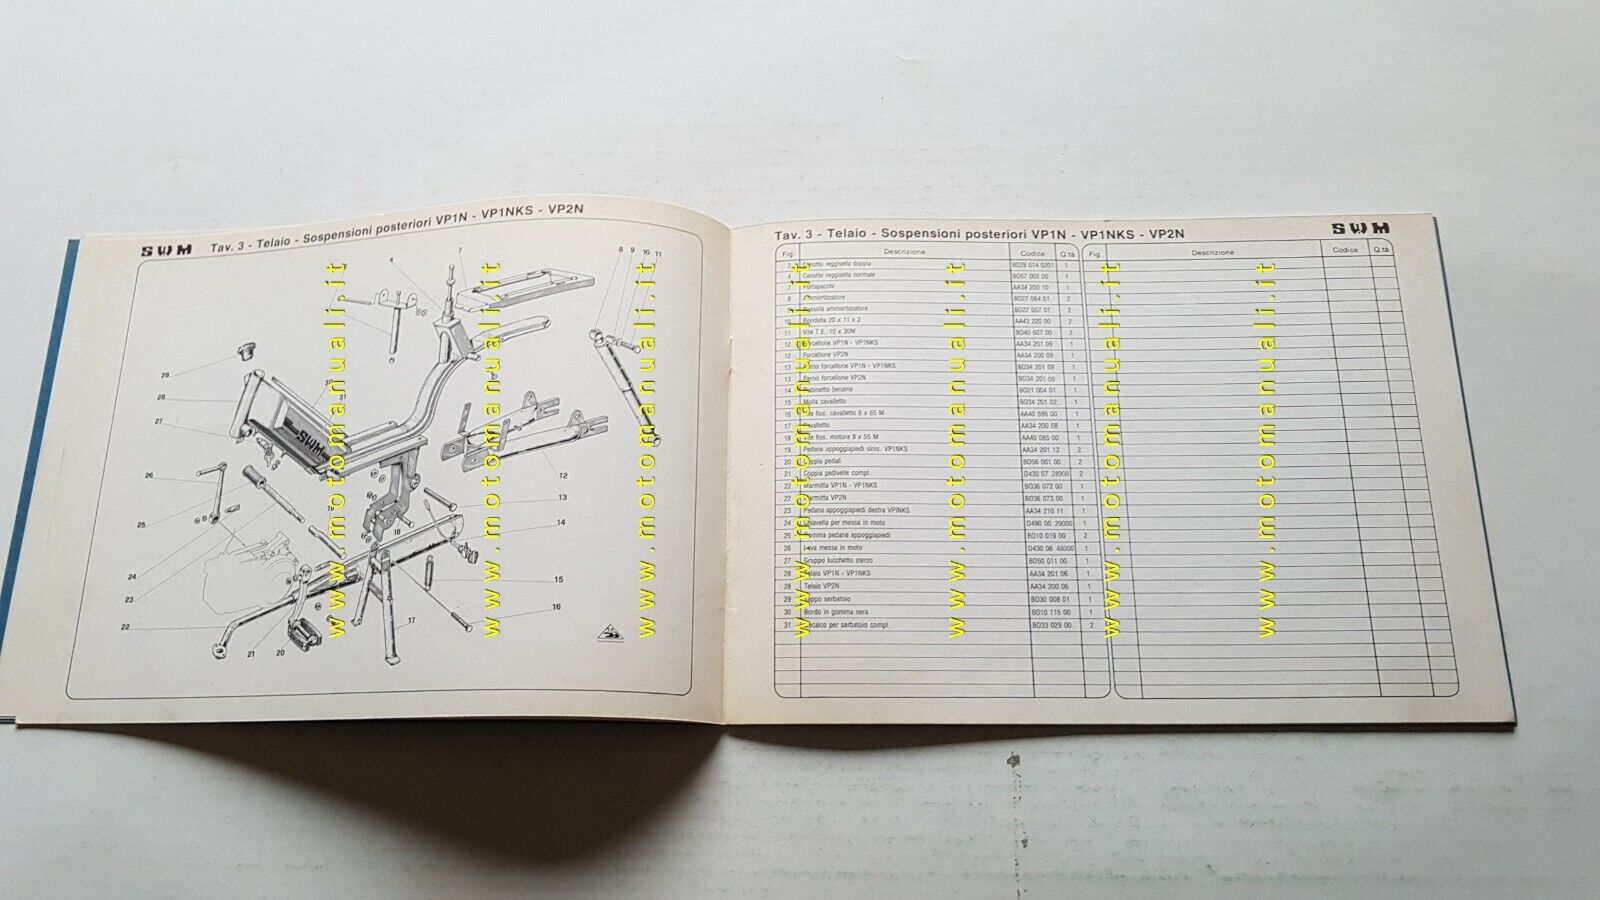 SWM Tav. 3 - Telaio - Sospensioni posteriori VP1N - VP1NKS - VP2N
4
7
8 9 10 11
29
30
28
31
27
SWM
26
12
13
19
25
18
14
24
15
23
16
22
17
21 20
Tav. 3 - Telaio - Sospensioni posteriori VP1N - VP1NKS - VP2N SWM
Fig. Descrizione Codice Q.tà Fig. Descrizione Codice Q.tà
2 Canotto reggisella doppia BO29 014 0201 1
4 Canotto reggisella normale BO57 002 00 1
7 Portapacchi AA34 200 10 1
8 Ammortizzatore BO27 064 01 2
9 Bussola ammortizzatore BO27 057 01 2
10 Rondella 20 x 11 x 2 AA43 225 00 2
11 Vite T.E. 10 x 30M BO40 607 00 2
12 Forcellone VP1N - VP1NKS AA34 201 09 1
12 Forcellone VP2N AA34 200 09 1
13 Perno forcellone VP1N - VP1NKS BO34 201 09 1
13 Perno forcellone VP2N BO34 201 09 1
14 Rubinetto benzina BO21 004 01 1
15 Molla cavalletto BO34 201 02 1
16 Vite fiss. cavalletto 8 x 65 M AA40 595 00 1
17 Cavalletto AA34 200 08 1
18 Vite fiss. motore 8 x 55 M AA40 085 00 1
19 Pedana appoggiapiedi sinis. VP1NKS AA34 201 12 2
20 Coppia pedali BO56 001 00 2
21 Coppia pedivelle compl. D430 07 28900 2
22 Marmitta VP1N - VP1NKS BO36 072 00 1
22 Marmitta VP2N BO36 073 00 1
23 Pedana appoggiapiedi destra VP1NKS AA34 210 11 1
24 Chiavella per messa in moto D490 00 29000 1
25 Gomma pedane appoggiapiedi BO10 019 00 2
26 Leva messa in moto D430 06 48000 1
27 Gruppo lucchetto sterzo BO50 011 00 1
28 Telaio VP1N - VP1NKS AA34 201 06 1
28 Telaio VP2N AA34 200 06 1
29 Tappo serbatoio BO30 008 01 1
30 Bordo in gomma nera BO10 115 00 1
31 Decalco per serbatoio compl. BO33 029 00 2
www.motomanuali.it
www.motomanuali.it
www.motomanuali.it
www.motomanuali.it
www.motomanuali.it
www.motomanuali.it
www.motomanuali.it